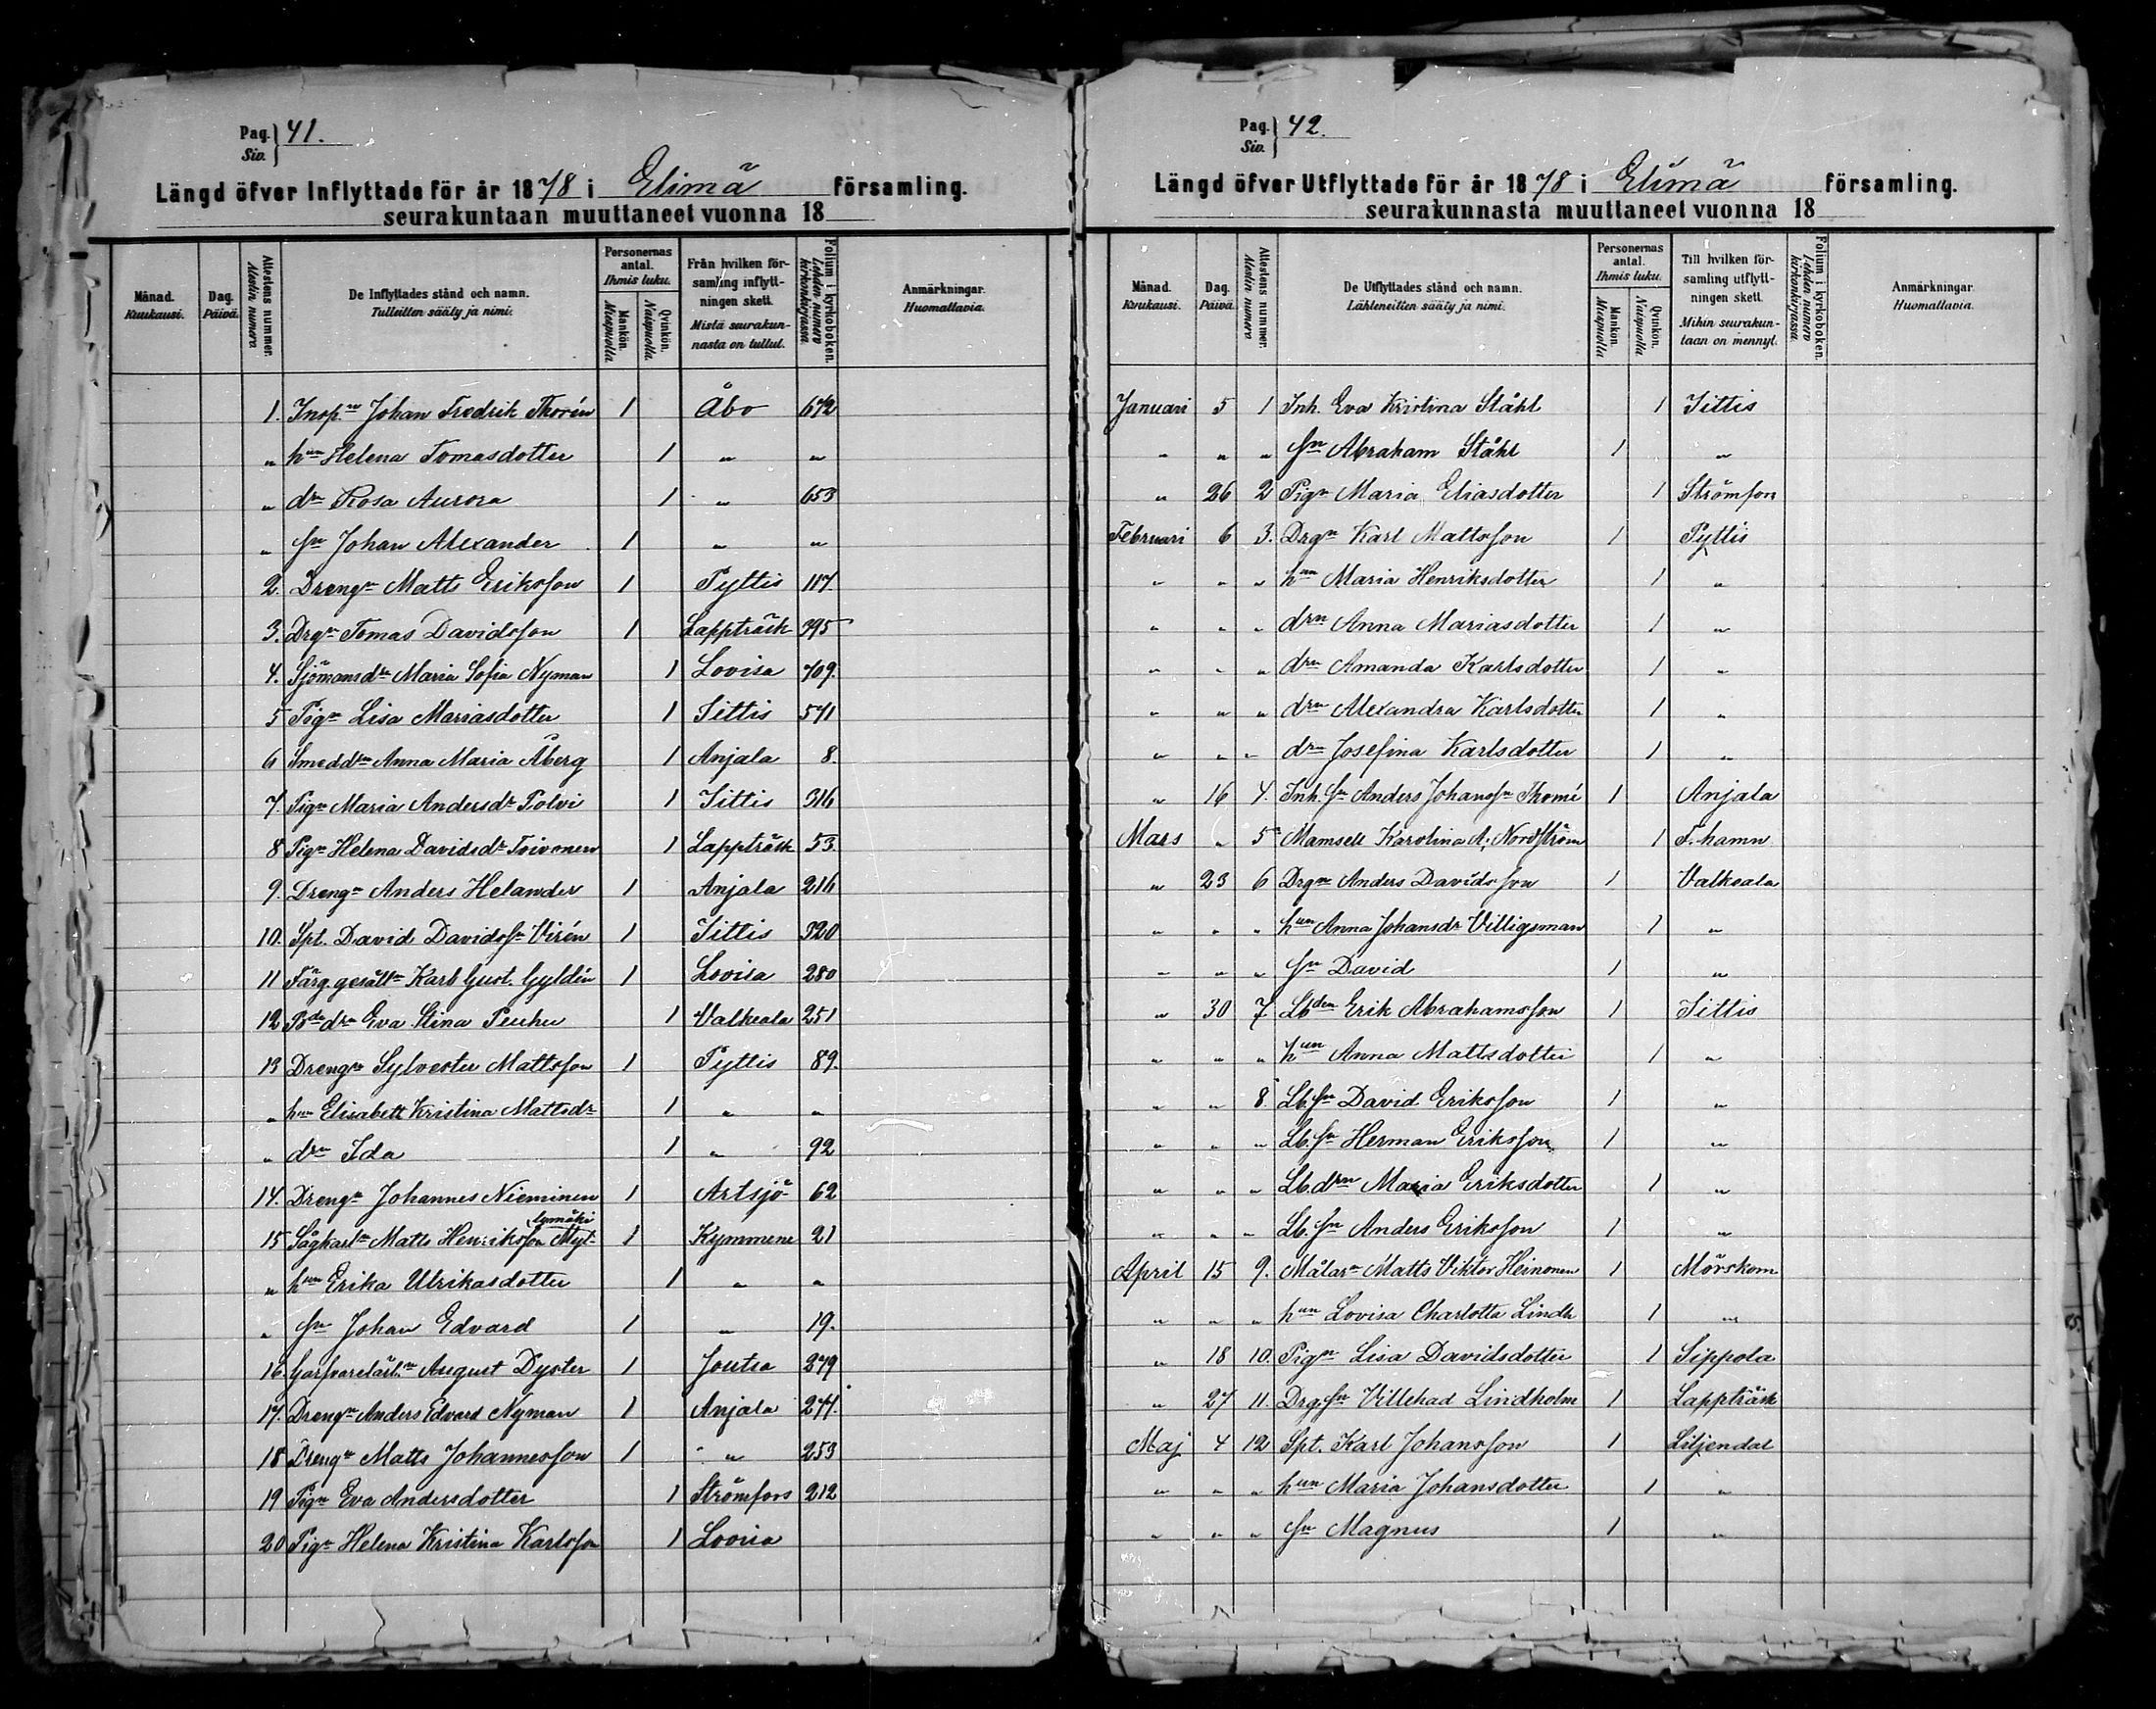 Pag. Siv. } 41.
Längd öfver Inflyttade för år 1878 i Elimä församling.
seurakuntaan muuttaneet vuonna 18
Månad. Kuukausi. Dag. Päivä. Attestens nummer. Nestin numero. De Inflyttades stånd och namn. Tulleitten sääty ja nimi. Personernas antal. Ihmis luku. Mankön. Miespuolia Qvinkön. Naispuolia. Från hvilken församling inflyttningen skett. Mistä seurakunnasta on tullut. Folium i kyrkoboken. Lehden numero kirkonkirjassa. Anmärkningar. Huomattavia.
1. Insp:n Johan Fredrik Thorén 1 Åbo 672
" hun Helena Tomasdotter 1 " "
" drn Rosa Aurora 1 " 653
" sn Johan Alexander 1 " "
2. Drengn Matts Eriksson 1 Pyttis 117.
3. Drgn Tomas Davidsson 1 Lappträsk 395
4. Sjömansdr Maria Sofia Nyman 1 Lovisa 709.
5 Pign Lisa Mariasdotter 1 Iittis 571
6 Smeddrn Anna Maria Åberg 1 Anjala 8.
7. Pign Maria Andersdr Polvi 1 Iittis 316
8 Pign Helena Davidsdr Toivonen 1 Lappträsk 53
9. Drengn Anders Helander 1 Anjala 216
10. Spt. David Davidssn Virén 1 Iittis 320
11 Färg.gesälln Karl Gust. Gyldén 1 Lovisa 280
12 Bde drn Eva Stina Peuhu 1 Valkeala 251
13 Drengn Sylvester Mattsson 1 Pyttis 89.
" hun Elisabett Kristina Mattsdr 1 " "
" drn Ida 1 " 92
14. Drengn Johannes Nieminen 1 Artsjö 62
15 Sågkarln Matts Henriksson Myllymäki 1 Kymmene 21
" hun Erika Ulrikasdotter 1 " "
" sn Johan Edvard 1 " 19.
16. Garfvarelärl:n August Dyster 1 Joutsa 279
17. Drengn Anders Edvard Nyman 1 Anjala 277.
18 Drengn Matts Johannesson 1 " 253
19 Pign Eva Andersdotter 1 Strömfors 212
20 Pign Helena Kristina Karlsson 1 Lovisa
Pag. Siv. } 42.
Längd öfver Utflyttade för år 1878 i Elimä församling.
seurakunnasta muuttaneet vuonna 18
Månad. Kuukausi. Dag. Päivä. Attestens nummer. Nestin numero De Utflyttades stånd och namn. Lähteneitten sääty ja nimi. Personernas antal. Ihmis luku. Mankön. Miespuolia Qvinkön. Naispuolia Till hvilken församling utflyttningen skett. Mihin seurakuntaan on mennyt. Folium i kyrkoboken. Lehden numero kirkonkirjassa. Anmärkningar. Huomattavia.
Januari 5 1 Inh. Eva Kristina Ståhl 1 Iittis
" " " sn Abraham Ståhl 1 "
" 26 2 Pign Maria Eliasdotter 1 Strömfors
Februari 6 3. Drgn Karl Mattsson 1 Pyttis
" " " hun Maria Henriksdotter 1 "
" " " drn Anna Mariasdotter 1 "
" " " drn Amanda Karlsdotter 1 "
" " " drn Alexandra Karlsdotter 1 "
" " " drn Josefina Karlsdotter 1 "
" 16 4. Inh. sn Anders Johanssn Thomé 1 Anjala
Mars " 5 Mamsell Karolina A. Nordström 1 F.hamn
" 23 6 Drgn Anders Davidsson 1 Valkeala
" " " hun Anna Johansdr Villigsman 1 "
" " " sn David 1 "
" 30 7 Lbden Erik Abrahamsson 1 Iittis
" " " hun Anna Mattsdotter 1 "
" " 8. Lb. sn David Eriksson 1 "
" " " Lb. sn Herman Eriksson 1 "
" " " Lb. drn Maria Eriksdotter 1 "
" " " Lb. sn Anders Eriksson 1 "
April 15 9. Målarn Matts Viktor Heinonen 1 Mörskom
" " " hun Lovisa Charlotta Lindh 1 "
" 18 10. Pign Lisa Davidsdotter 1 Sippola
" 27 11. Drg. sn Villehad Lindholm 1 Lappträsk
Maj 4 12 Spt. Karl Johansson 1 Liljendal
" " " hun Maria Johansdotter 1 "
" " " sn Magnus 1 "